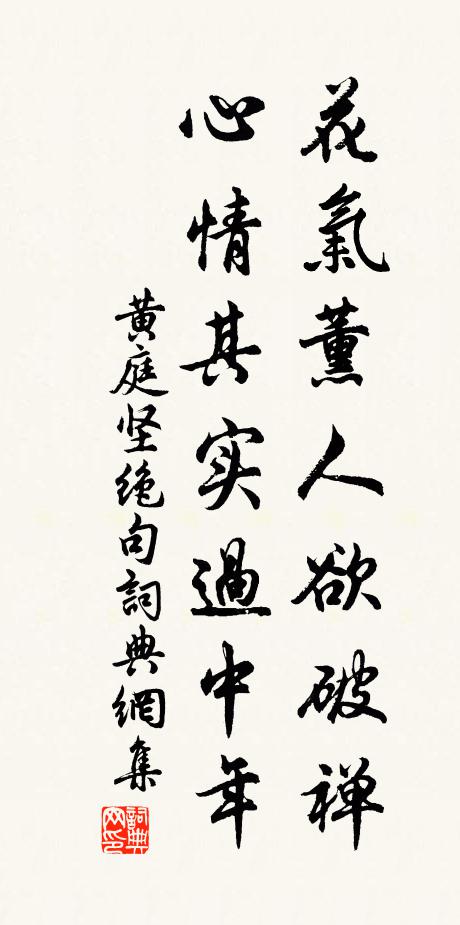 花氣薰人欲破禅
心情其实過中年
黄庭坚绝句詞典網集
詞典网印